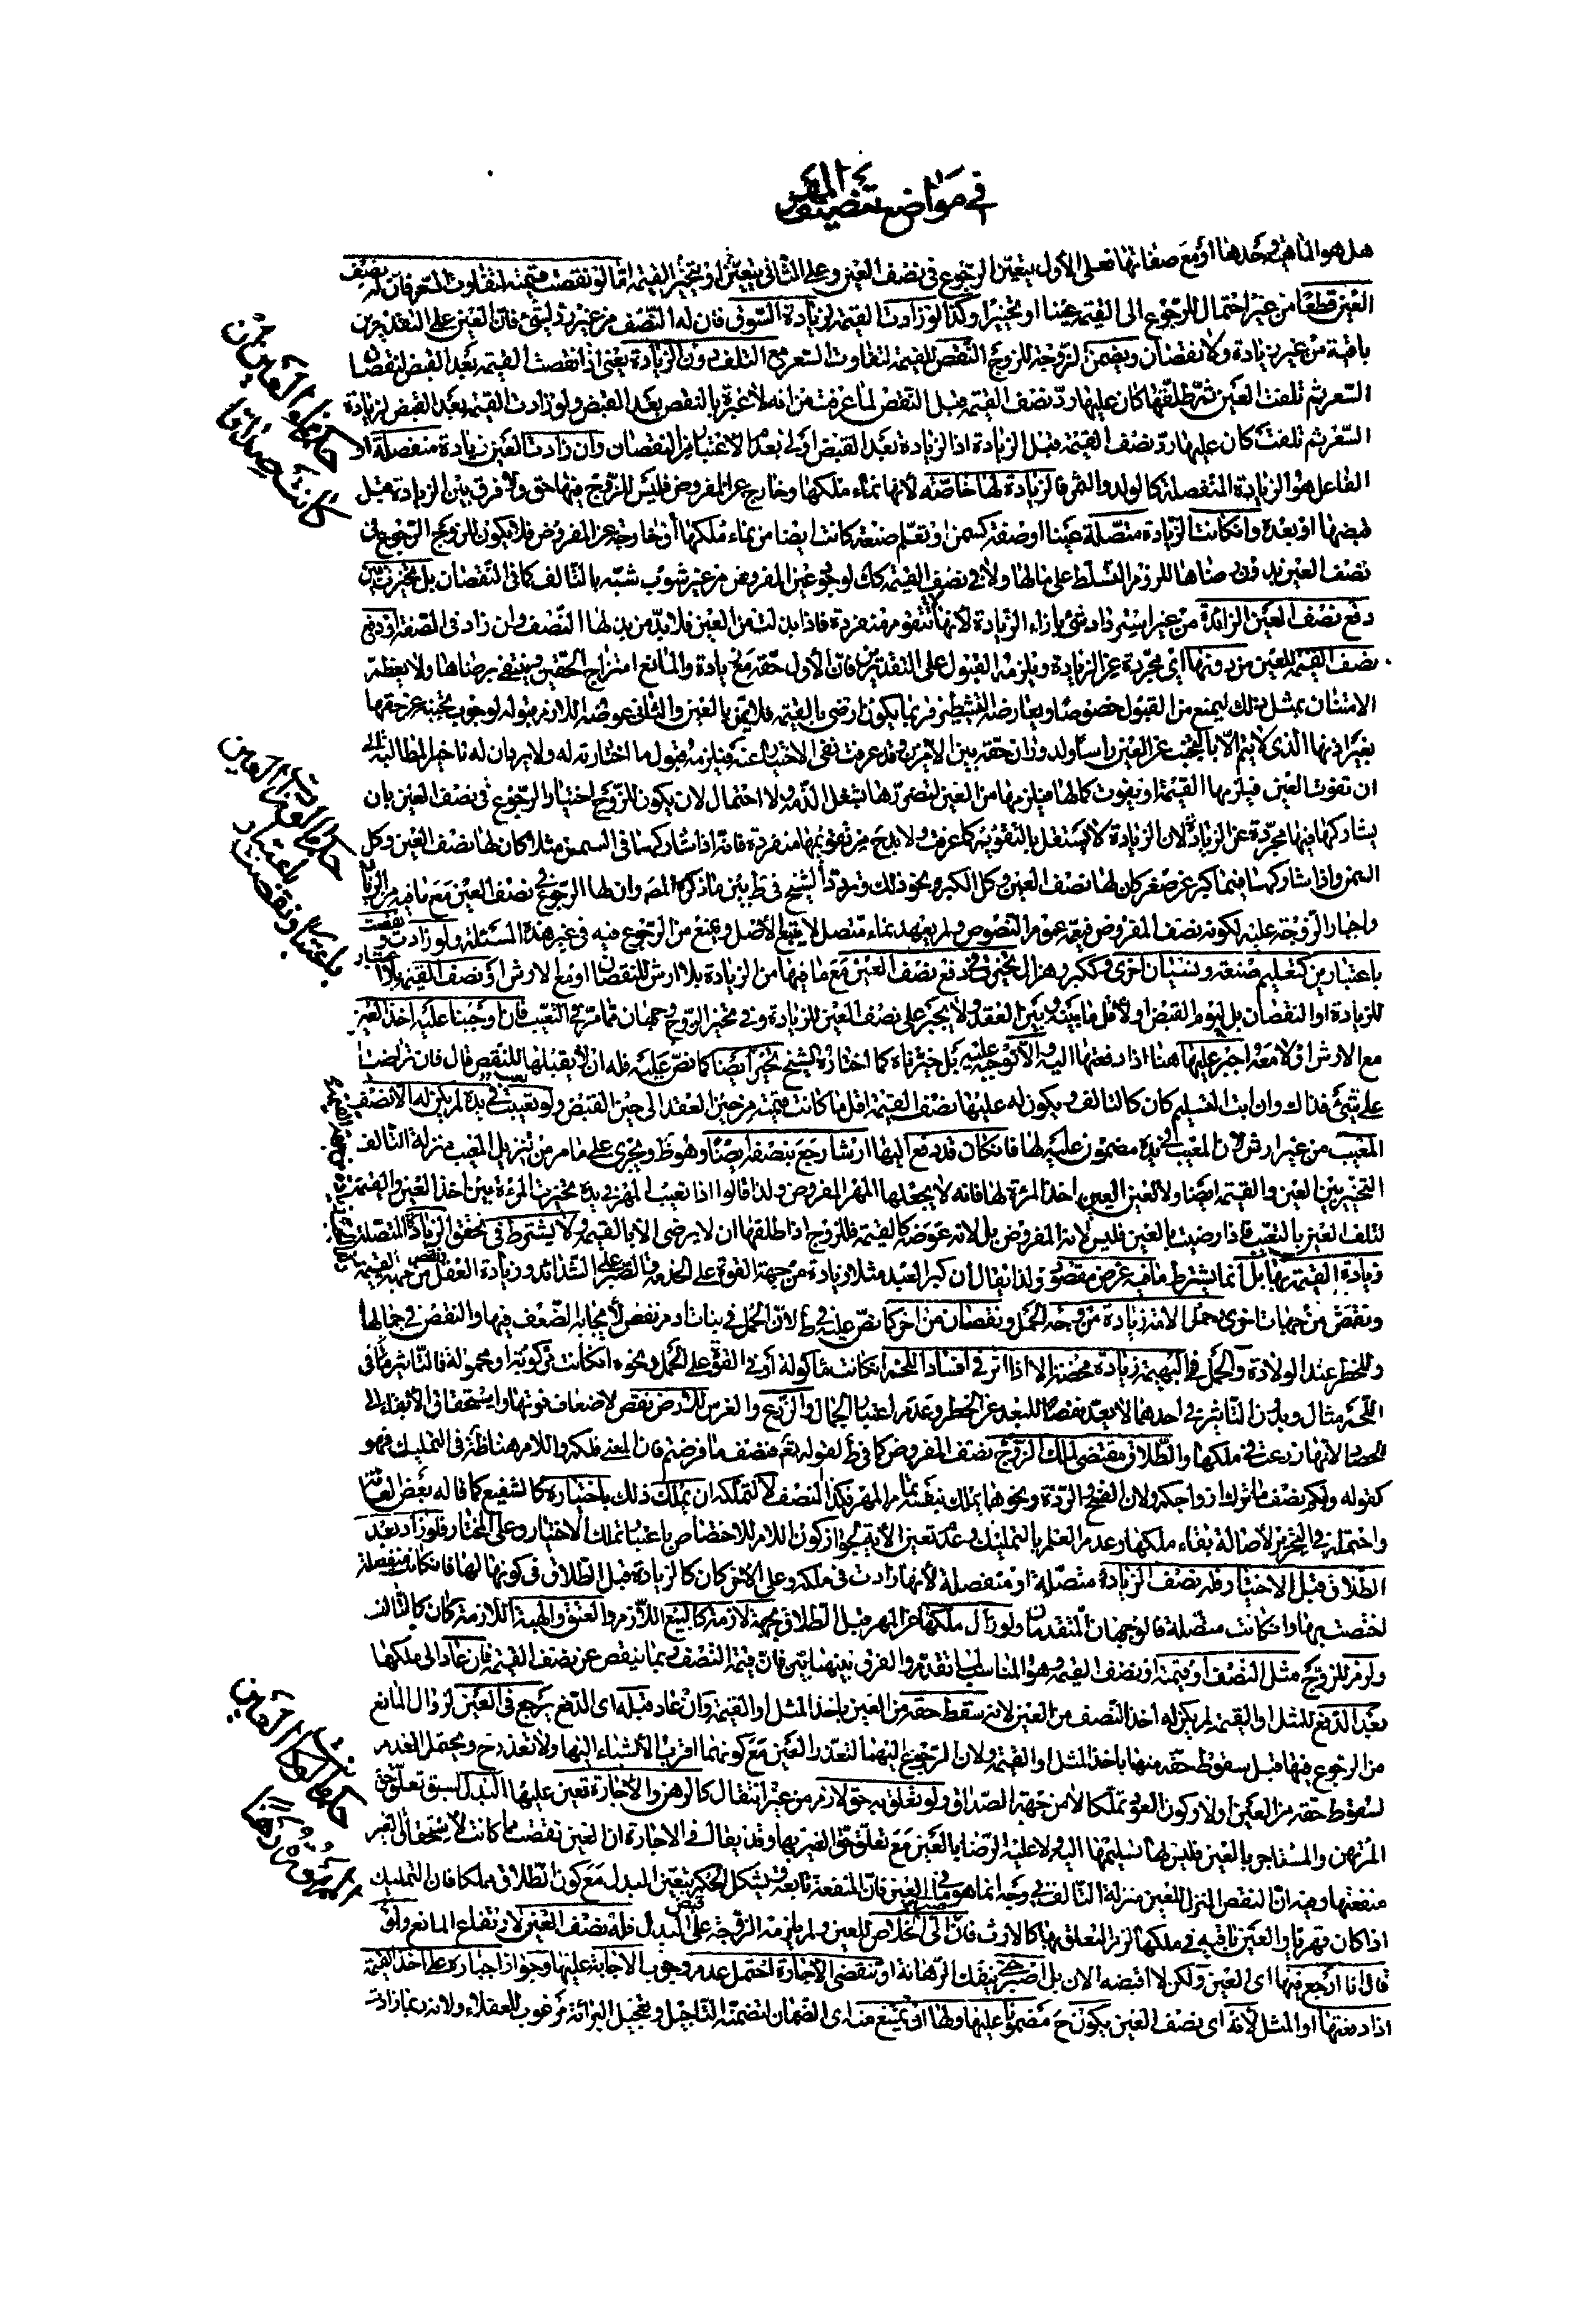 في مواضع تنصيف المهر
هل هو الماهية وحدها او مع صفاتها فعلى الأول يتعين الرجوع في نصف العين وعلى الثاني يتعين او يتخير القيمة اما لو نقصت قيمته لتفاوت السعر فان له نصف
العين قطعا من غير احتمال للرجوع الى القيمة عينا او تخييرا وكذا لو زادت القيمة لزيادة السوق فان له النصف من غير رد لشيء فان العين على التقديرين
باقية من غير زيادة ولا نقصان ويضمن الزوجة للزوج النقص للقيمة لتفاوت السعر مع التلف دون الزيادة يعني اذا نقصت القيمة بعد القبض لنقصان
السعر ثم تلفت العين ثم طلقها كان عليها رد نصف القيمة قبل النقص لما عرفت من انه لا عبرة بالنقص بعد القبض ولو زادت القيمة بعد القبض لزيادة
السعر ثم تلفت كان عليها رد نصف القيمة قبل الزيادة اذ الزيادة بعد القبض اولى بعدم الاعتبار من النقصان وان زادت العين زيادة منفصلة اذ
الفاعل هو الزيادة المنفصلة كالولد والثمر فالزيادة لها خاصة لأنها نماء ملكها وخارج عن المفروض فليس للزوج فيها حق ولا فرق بين الزيادة قبل
قبضها او بعده وان كانت الزيادة متصلة عينا او صفة كسمن او تعلم صنعة كانت ايضا من نماء ملكها او خارجة عن المفروض فلا يكون للزوج الرجوع في
نصف العين بدون رضاها للزوم التسلط على مالها ولا في نصف القيمة كك لوجوع عين المفروض من غير شوب شبه بالتالف كما في النقصان بل تخيرت بين
دفع نصف العين الزائدة من غير استرداد شيء بإزاء الزيادة لأنها لا تتقوم منفردة فاذا بذلت من العين فلا بد من بذلها النصف وان زاد في الصفة او دفع
نصف القيمة للعين من دونها اى مجردة عن الزيادة ويلزمه القبول على التقديرين فان الأول حقه مع زيادة والمانع امتزاج الحقين وينتفي برضاها ولا يعظم
الامتنان بمثل ذلك ليمنع من القبول خصوصا ويعارضه التشطير فربما يكون ارضى بالقيمة فلا يمن بالعين والثاني عوضه اللازم قبوله لوجوب تجنبه عن حقها
بغير اذنها الذى لا يتم الا بالتجنب عن العين رأسا ولدوران حقه بين الامرين وقد عرفت نفى الاختيار عنه فيلزمه قبول ما اختارته له ولا يريان له تاخير المطالبة الى
ان تفوت العين فيلزمها القيمة او يفوت كمالها فيلزمها من العين لتضررها بشغل الذمة ولا احتمال لان يكون للزوج اختيار الرجوع في نصف العين بان
يشاركها فيها مجردة عن الزيادة لان الزيادة لا تستقل بالتقويم كما عرفت ولا بد ح من تقويمها منفردة فانه اذا شاركها في السمين مثلا كان لها نصف العين وكل
السمن واذا شاركها فيما كبر عن صغر كان لها نصف العين وكل الكبر ونحو ذلك وتردد الشيخ في ط بين ما ذكره المص وان لها الرجوع في نصف العين مع ما فيه من الزيادة
واجبار الزوجة عليه لكونه نصف المفروض فيعمه عموم النصوص ولم يعهد نماء متصل لا يتبع الأصل ويمنع من الرجوع فيه في غير هذه المسئلة ولو زادت ونقصت
باعتبارين كتعليم صنعة ونسيان اخرى وككبر وهزال تخيرت في دفع نصف العين مع ما فيها من الزيادة بلا ارش للنقصان او مع الارش او نصف القيمة بلا اعتبار
للزيادة او النقصان بل ليوم القبض او لاقل ما بينه وبين العقد ولا يجبر على نصف العين للزيادة وفي تخير الزوج وجهان مما مر في التعيب فان اوجبنا عليه اخذ العين
مع الارش او لا معه اجبر عليها هنا اذا دفعتها اليه والا توجبه عليه بل خيرناه كما اختاره الشيخ تخير ايضا كما نص عليه فله ان لا يقبلها للنقص قال فان تراضيا
على شيء فذاك وان ابت التسليم كان كالتالف ويكون له عليها نصف القيمة اقل ما كانت قيمته من حين العقد الى حين القبض ولو تعيبت في يده لم يكن له الا نصف
المعيب من غير ارش لان المعيب في يده مضمون عليه لها فان كان قد دفع اليها ارشا رجع بنصفه ايضا وهو ظ ويجرى على ما مر من تنزيل المعيب منزلة التالف
التخيير بين العين والقيمة ايضا ولا لعين العين اخذ المرئة لها فانه لا يجعلها المهر المفروض ولذا قالوا اذا تعيب المهر في يده تخيرت المرئة بين اخذ العين والقيمة
لتلف العين بالتعيب فاذا رضيت بالعين فليس لانه المفروض بل لانه عوضه كالقيمة فللزوج اذا طلقها ان لا يرضى الا بالقيمة ولا يشترط في تحقق الزيادة المتصلة
زيادة القيمة بها بل انما يشترط ما فيه غرض مقصود ولذا يقال ان كبر العبد مثلا زيادة من جهة القوة على الخدمة والصبر على الشدائد وزيادة العقل ونقص من جهة القيمة
ونقص من جهات اخرى وحمل الامة زيادة من وجه الحمل ونقصان من اخر كما نص عليه في ط لان الحمل في بنات ادم نقص لأيجابه الضعف فيها والنقص في جمالها
وللخطر عند الولادة والحمل في البهيمة زيادة محضة الا اذا اثر في افساد اللحم ان كانت ماكولة او في القوة على الحمل ونحوه ان كانت مركوبة او محمولة فالتاثير في
اللحم مثال وبدون التاثير في احدهما لا يعد نقصا للبعد عن الخطر وعدم اعتبار الجمال والزرع والغرس للارض نقص لاضعاف قوتها واستحقاق الأبقاء الى
الحصاد لانها زرعت في ملكها والطلاق مقتضى لملك الزوج نصف المفروض كما في ط لقوله تعم فنصف ما فرضتم فان المعنى فلكم واللام هنا ظاهرة في التمليك فهو
كقوله ولكم نصف ما ترك ازواجكم ولان الفسخ والردة ونحوهما يملك بنفسه تمام المهر فكذا النصف لا لتملكه ان تملك ذلك باختياره كالشفيع كما قاله بعض العامة
واحتمله في التحرير لأصالة بقاء ملكها وعدم العلم بالتمليك وعدم تعين الأية لجواز كون اللام للاختصاص باعتبار تملك الاختيار وعلى المختار فلو زاد بعد
الطلاق قبل الاختيار فله نصف الزيادة متصلة او منفصلة لأنها زادت في ملكه وعلى الاخر كان كالزيادة قبل الطلاق في كونها لها فان كانت منفصلة
اختصت بها وان كانت متصلة فالوجهان المتقدمان ولو زال ملكها عن المهر قبل الطلاق بجهة لازمة كالبيع اللازم والعتق والهبة اللازمة كان كالتالف
ولزم للزوج مثل النصف او قيمته او نصف القيمة وهو المناسب لما تقدم والفرق بينهما بين فان قيمة النصف ربما ينقص عن نصف القيمة فان عاد الى ملكها
بعد الدفع للمثل او القيمة لم يكن له اخذ النصف من العين لانه سقط حقه من العين باخذ المثل او القيمة وان عاد قبله اى الدفع رجع في العين لزوال المانع
من الرجوع فيها قبل سقوط حقه منها باخذ المثل او القيمة ولان الرجوع اليهما لتعذر العين مع كونهما اقرب الأشياء اليها ولا تعذر ح ويحتمل العدم
لسقوط حقه من العين اولا وكون العود تملكا لا من جهة الصداق ولو تعلق به حق لازم من غير انتقال كالرهن والأجارة تعين عليها البدل لسبق تعلق حق
المرتهن والمستاجر بالعين فليس لها تسليمها اليه ولا عليه الرضا بالعين مع تعلق حق الغير بها وقد يقال في الاجارة ان العين نقصت بما كانت لاستحقاق الغير
منفعتها وفيه ان النقص المنزل للعين منزلة التالف في وجه انما هو في العين فان المنفعة تابعة ويشكل الحكم بتعين البدل مع كون الطلاق مملكا فان التمليك
اذا كان قهريا والعين باقية في ملكها لزم التعلق بها كالارث فان صبر الى الخلاص للعين ولم يلزمه الزوجة على قبض البدل فله نصف العين لارتفاع المانع ولو
قال انا ارجع فيها اى العين ولكن لا اقبضه الان بل اصبر حتى ينفك الرهانة او تنقضى الأجارة احتمل عدم وجوب الاجابة عليها وجواز اجباره على اخذ القيمة
اذا دفعتها او المثل لانه اى نصف العين يكون ح مضمونا عليها ولها ان تمتنع منه اى الضمان لتضمنه التاجيل وتعجيل البرائة مرغوب للعقلاء ولانه ربما زادت